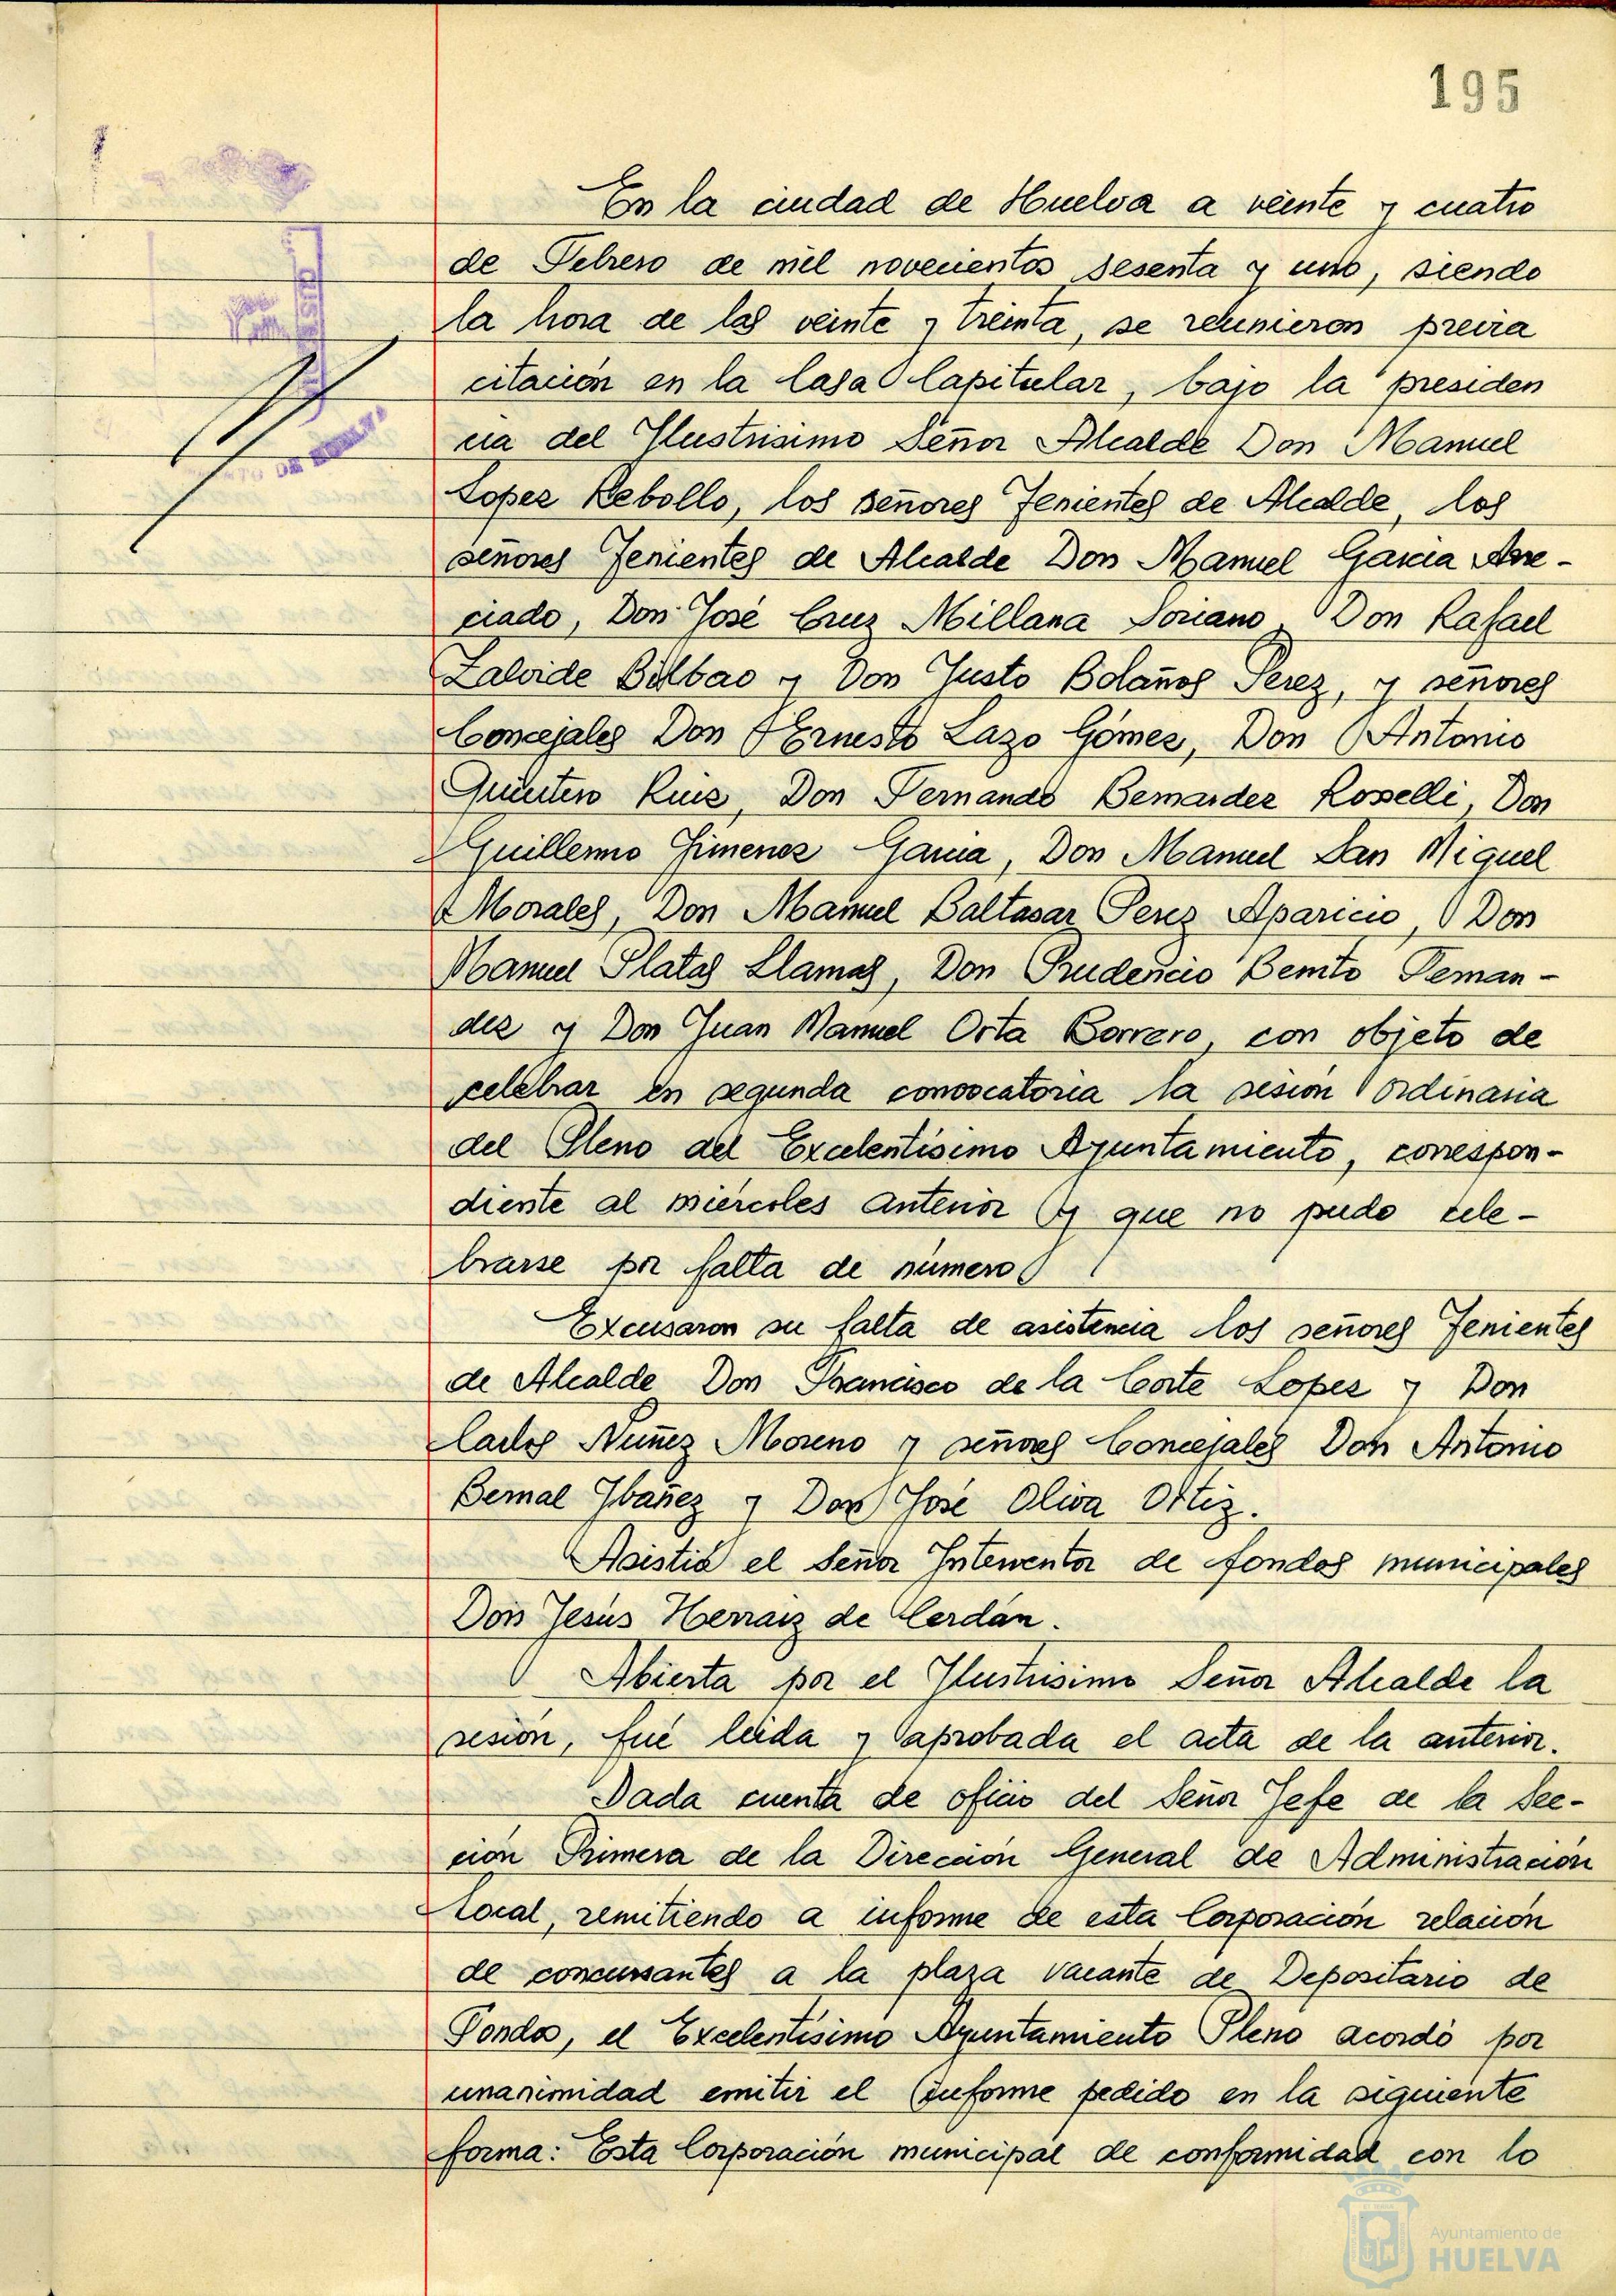 195
En la ciudad de Huelva a veinte y cuatro
de Febrero de mil novecientos sesenta y uno, siendo
la hora de las veinte y treinta, se reunieron previa
citación en la Casa Capitular, bajo la presiden
cia del Ilustrisimo Señor Alcalde Don Manuel
Lopez Rebollo, los señores Tenientes de Alcalde, los
señores Tenientes de Alcalde Don Manuel Garcia Arre-
ciado, Don José Cruz Millana Soriano, Don Rafael
Zalvide Bilbao y Don Justo Bolaños Perez, y señores
Concejales Don Ernesto Lazo Gómez, Don Antonio
Quintero Ruiz, Don Fernando Bernardez Rosselli, Don
Guillermo Jimenez Garcia, Don Manuel San Miguel
Morales, Don Manuel Baltasar Perez Aparicio, Don
Manuel Platas Llamas, Don Prudencio Benito Fernan-
dez y Don Juan Manuel Orta Borrero, con objeto de
celebrar en segunda convocatoria la sesion ordinaria
del Pleno del Excelentísimo Ayuntamiento, correspon-
diente al miércoles anterior y que no pudo cele-
brarse por falta de número
Excusaron su falta de asistencia los señores Tenientes
de Alcalde Don Francisco de la Corte Lopez y Don
Carlos Nuñez Moreno y señores Concejales Don Antonio
Bernal Ybañez y Don José Oliva Ortiz.
Asistió el Señor Interventor de fondos municipales
Don Jesús Herraiz de Cerdán.
Abierta por el Ilustrisimo Señor Alcalde la
sesión, fué leida y aprobada el acta de la anterior.
Dada cuenta de oficio del Señor Jefe de la Sec-
ción Primera de la Dirección General de Administración
Local, remitiendo a informe de esta Corporación relación
de concursantes a la plaza vacante de Depositario de
Fondos, el Excelentísimo Ayuntamiento Pleno acordó por
unanimidad emitir el informe pedido en la siguiente
forma: Esta Corporación municipal de conformidad con lo
Ayuntamiento de
HUELVA